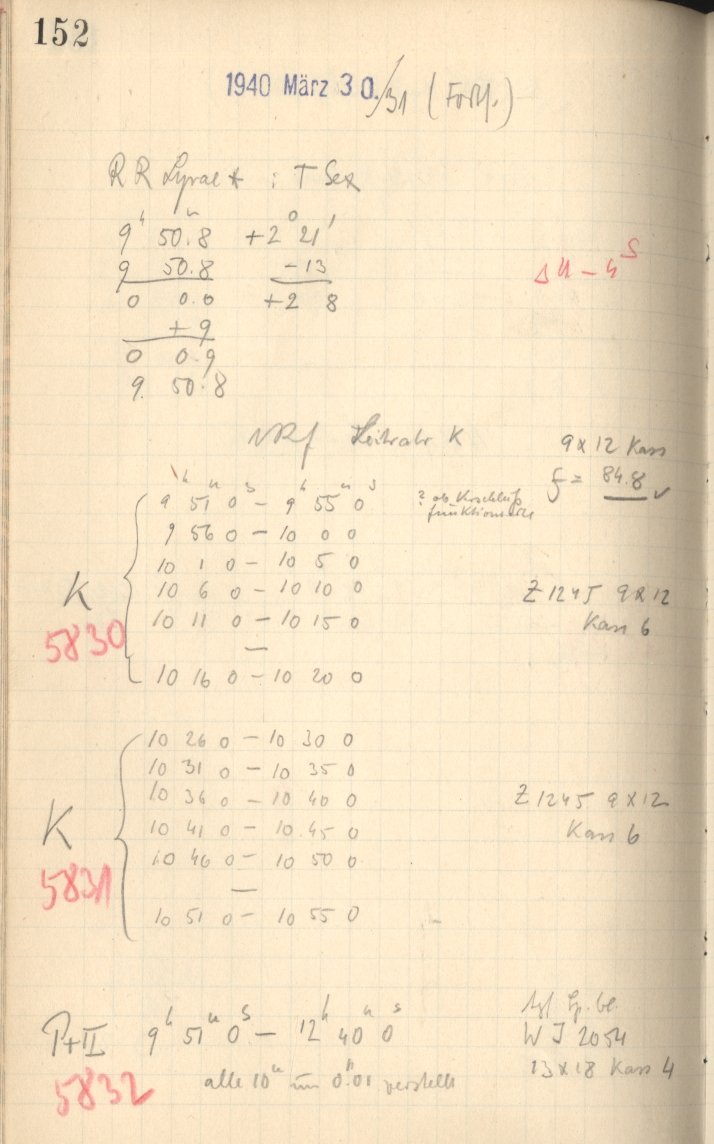 152
1940 März 30./31 (Forts.)
RR Lyrae * : T Sex
9ʰ 50ᵐ.8 +2° 21'
9 50.8 -13
0 0.0 +2 8
+9
0 0.9
9 50.8
ΔU - 4ˢ
K 9 x 12 Kass
f = 84.8 ✓
9ʰ 51ᵐ 0ˢ - 9ʰ 55ᵐ 0ˢ ? ob Verschluß
funktionierte
9 56 0 - 10 0 0
10 1 0 - 10 5 0
10 6 0 - 10 10 0
10 11 0 - 10 15 0
—
10 16 0 - 10 20 0
K
5830
Z 1245 9 x 12
Kass 6
10 26 0 - 10 30 0
10 31 0 - 10 35 0
10 36 0 - 10 40 0
10 41 0 - 10 45 0
10 46 0 - 10 50 0
—
10 51 0 - 10 55 0
K
5831
Z 1245 9 x 12
Kass 6
P+II 9ʰ 51ᵐ 0ˢ - 12ʰ 40ᵐ 0ˢ
5832
alle 10ᵐ um 0".01 verstellt
WJ 2054
13 x 18 Kass 4